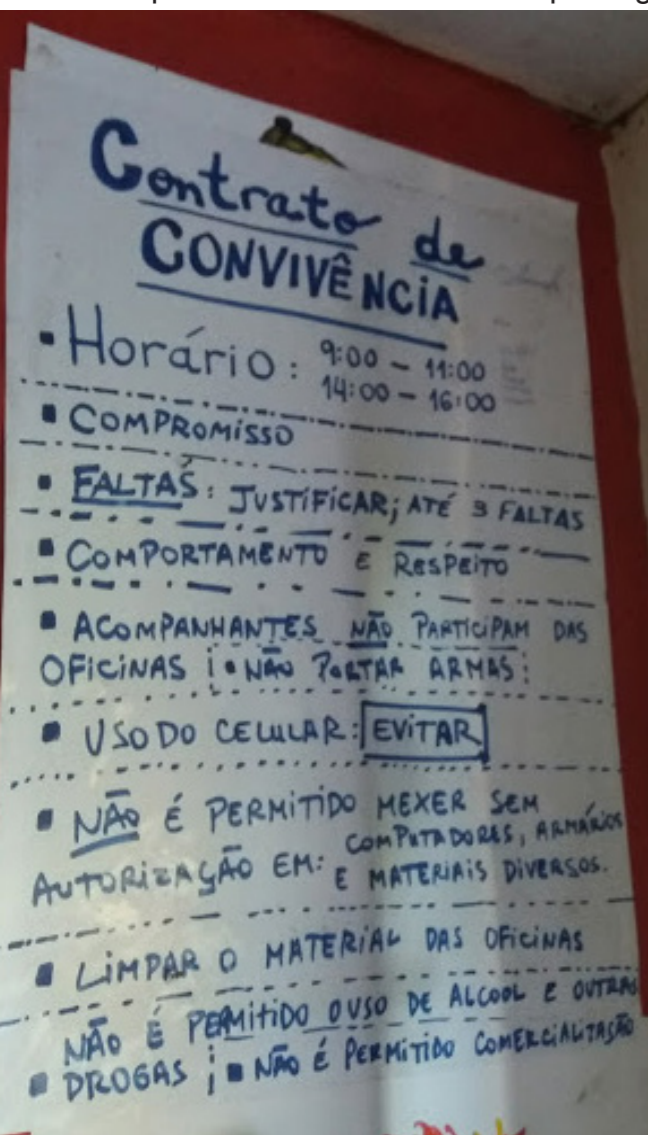 Contrato de
CONVIVÊNCIA
▪ Horário: 9:00 – 11:00
14:00 – 16:00
▪ COMPROMISSO
▪ FALTAS: JUSTIFICAR; ATÉ 3 FALTAS
▪ COMPORTAMENTO E RESPEITO
▪ ACOMPANHANTES NÃO PARTICIPAM DAS
OFICINAS ¡ ▪ NÃO PORTAR ARMAS:
▪ USO DO CELULAR: EVITAR
▪ NÃO É PERMITIDO MEXER SEM
AUTORIZAÇÃO EM: COMPUTADORES, ARMÁRIOS
E MATERIAIS DIVERSOS.
▪ LIMPAR O MATERIAL DAS OFICINAS
NÃO É PERMITIDO O USO DE ALCOOL E OUTRAS
▪ DROGAS ¡ ▪ NÃO É PERMITIDO COMERCIALIZAÇÃO